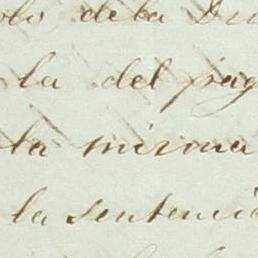 olo dela
la del pag
ta misma
la sentenci